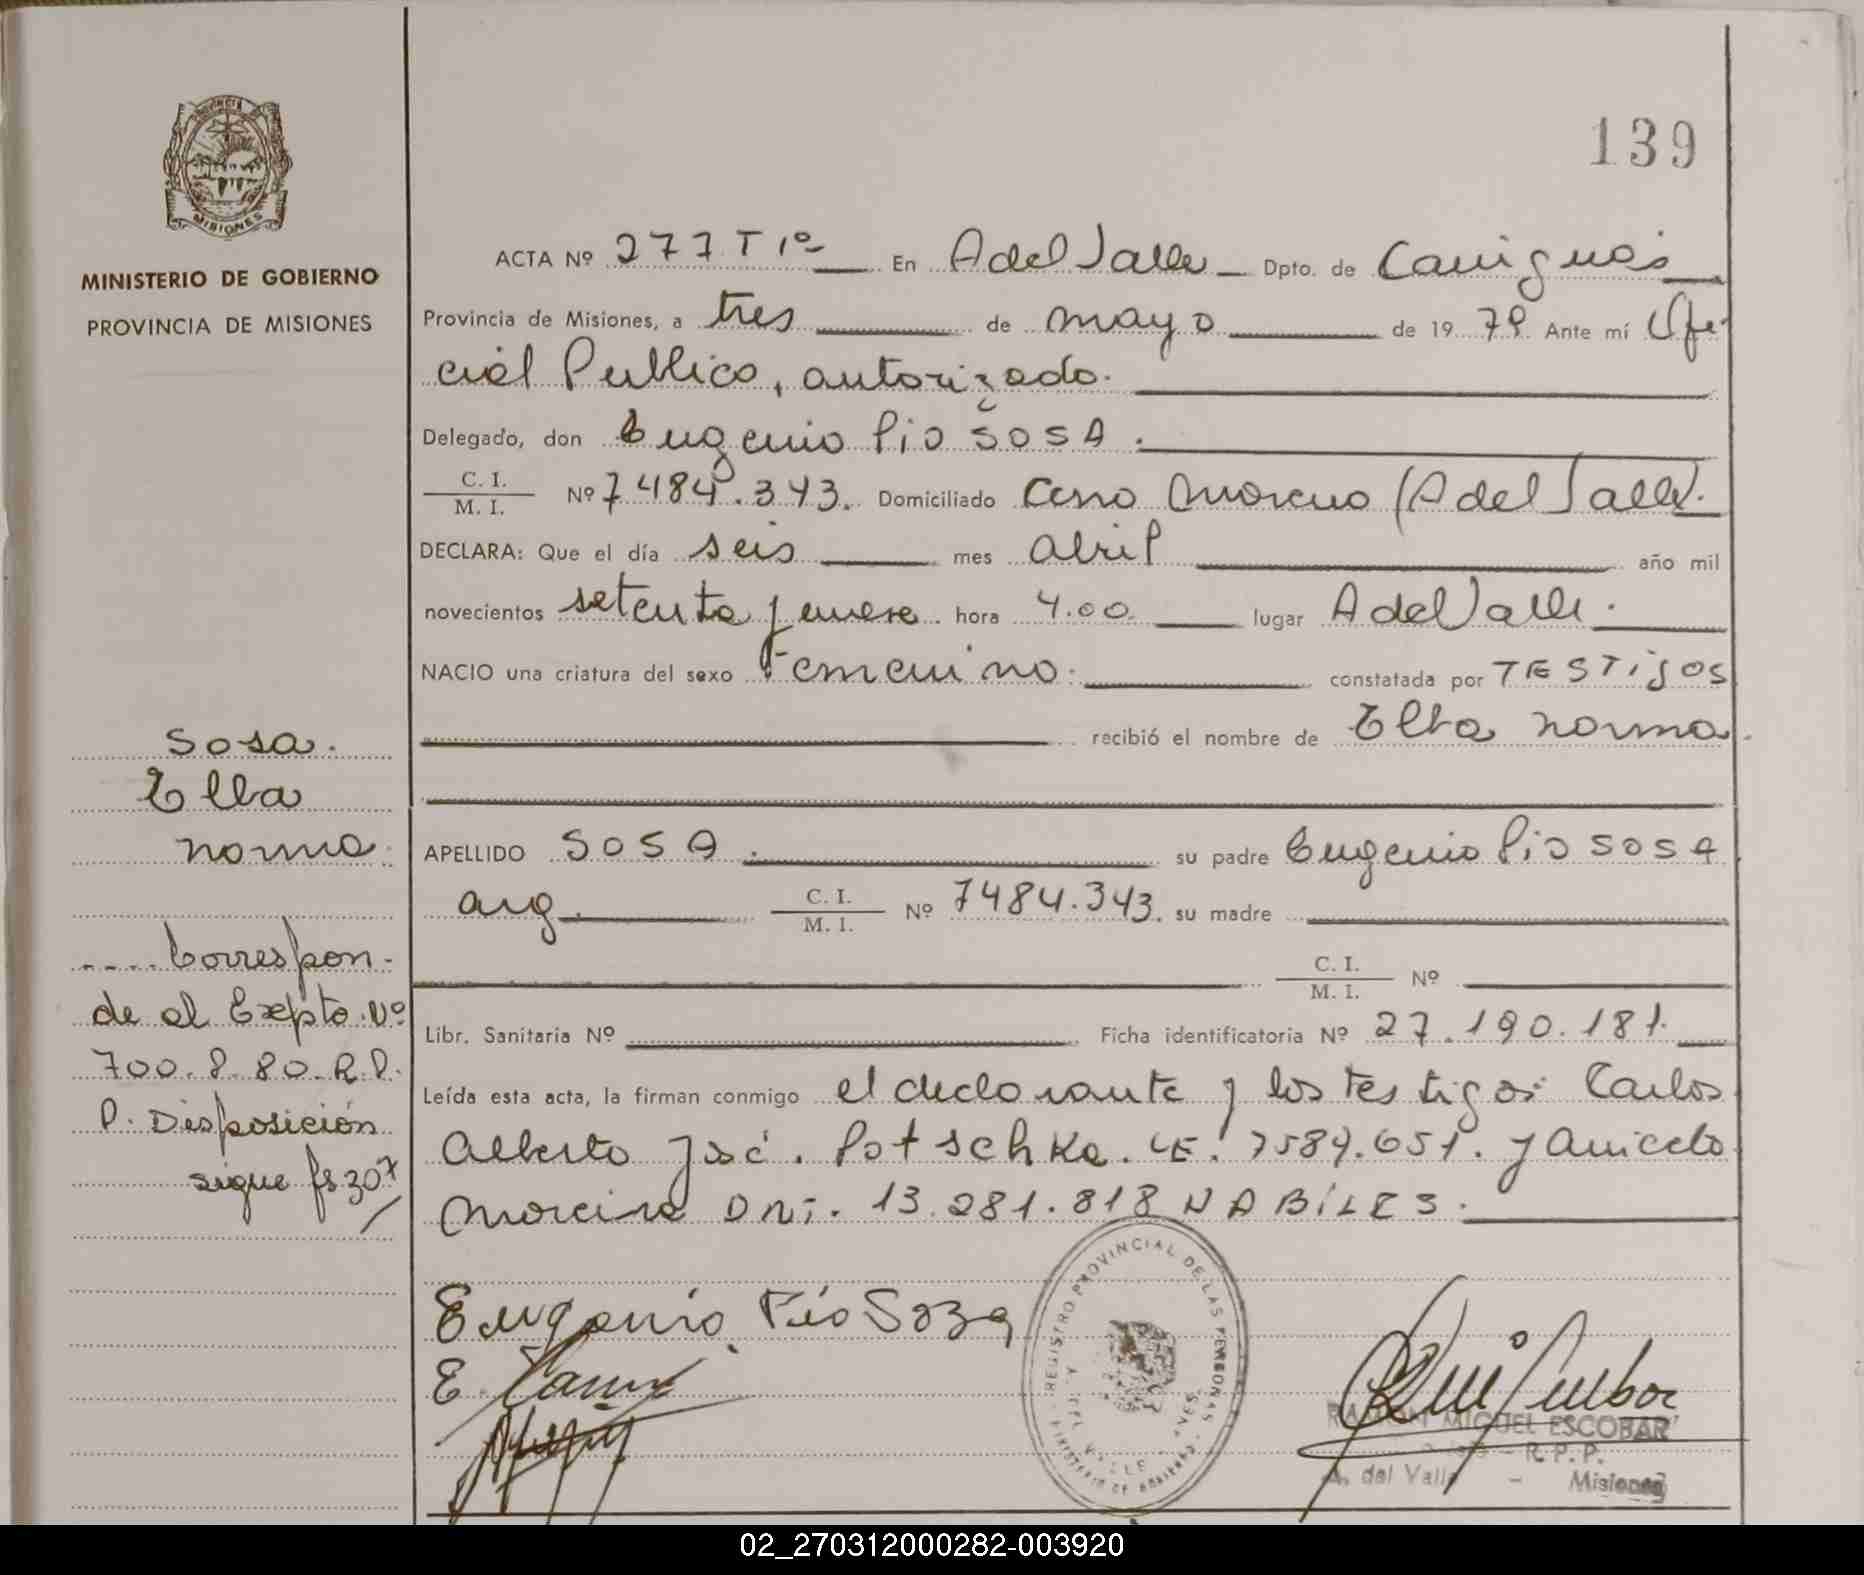 139
MINISTERIO DE GOBIERNO
PROVINCIA DE MISIONES
MISIONES
ACTA Nº 277 T 1º En A del Valle Dpto. de Cainguás
Provincia de Misiones, a tres de mayo de 1979. Ante mí Ofi-
cial Publico, autorizado.
Delegado, don Eugenio Pio SOSA.
C. I. / M. I. Nº 7484.343. Domiciliado Cerro Moreno (A del Valle).
DECLARA: Que el día seis mes abril año mil
novecientos setenta y nueve hora 4.00 lugar A del Valle.
NACIO una criatura del sexo Femenino. constatada por TESTIGOS
recibió el nombre de Elba norma
APELLIDO SOSA. su padre Eugenio Pio SOSA
arg. C. I. / M. I. Nº 7484.343. su madre
C. I. / M. I. Nº
Libr. Sanitaria Nº Ficha identificatoria Nº 27.190.181.
Leída esta acta, la firman conmigo el declarante y los testigos: Carlos
Alberto José. Potschka. LE. 7584.651. y Aniceto
Moreira DNI. 13.281.818 HABILES.
Sosa.
Elba
norma
.... Correspon-
de al Expto. Nº
700.8.80.R.P.
P. Disposición
sigue fs 307
Eugenio Pio Soza
REGISTRO PROVINCIAL DE LAS PERSONAS
RAMON MIGUEL ESCOBAR
R. P. P.
A. del Valle - Misiones
02_270312000282-003920